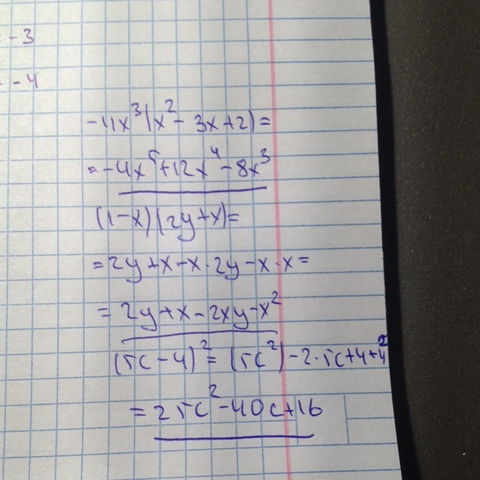 -3
-4
-4x³(x²-3x+2)=
=-4x⁵+12x⁴-8x³
(1-x)(2y+x)=
=2y+x-x·2y-x·x=
=2y+x-2xy-x²
(5c-4)²=(5c²)-2·5c+4+4²
=25c²-40c+16